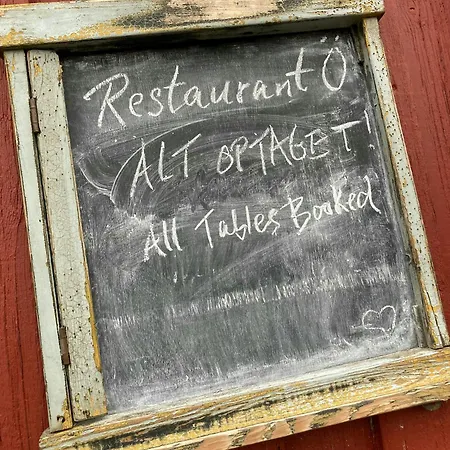 Restaurant Ö
ALT OPTAGET!
All Tables Booked